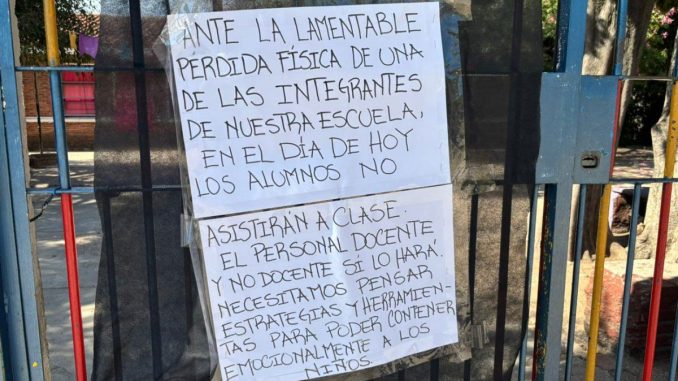 ANTE LA LAMENTABLE
PERDIDA FÍSICA DE UNA
DE LAS INTEGRANTES
DE NUESTRA ESCUELA,
EN EL DÍA DE HOY
LOS ALUMNOS NO
ASISTIRÁN A CLASE.
EL PERSONAL DOCENTE
Y NO DOCENTE SÍ LO HARÁ.
NECESITAMOS PENSAR
ESTRATEGIAS Y HERRAMIEN-
TAS PARA PODER CONTENER
EMOCIONALMENTE A LOS
NIÑOS